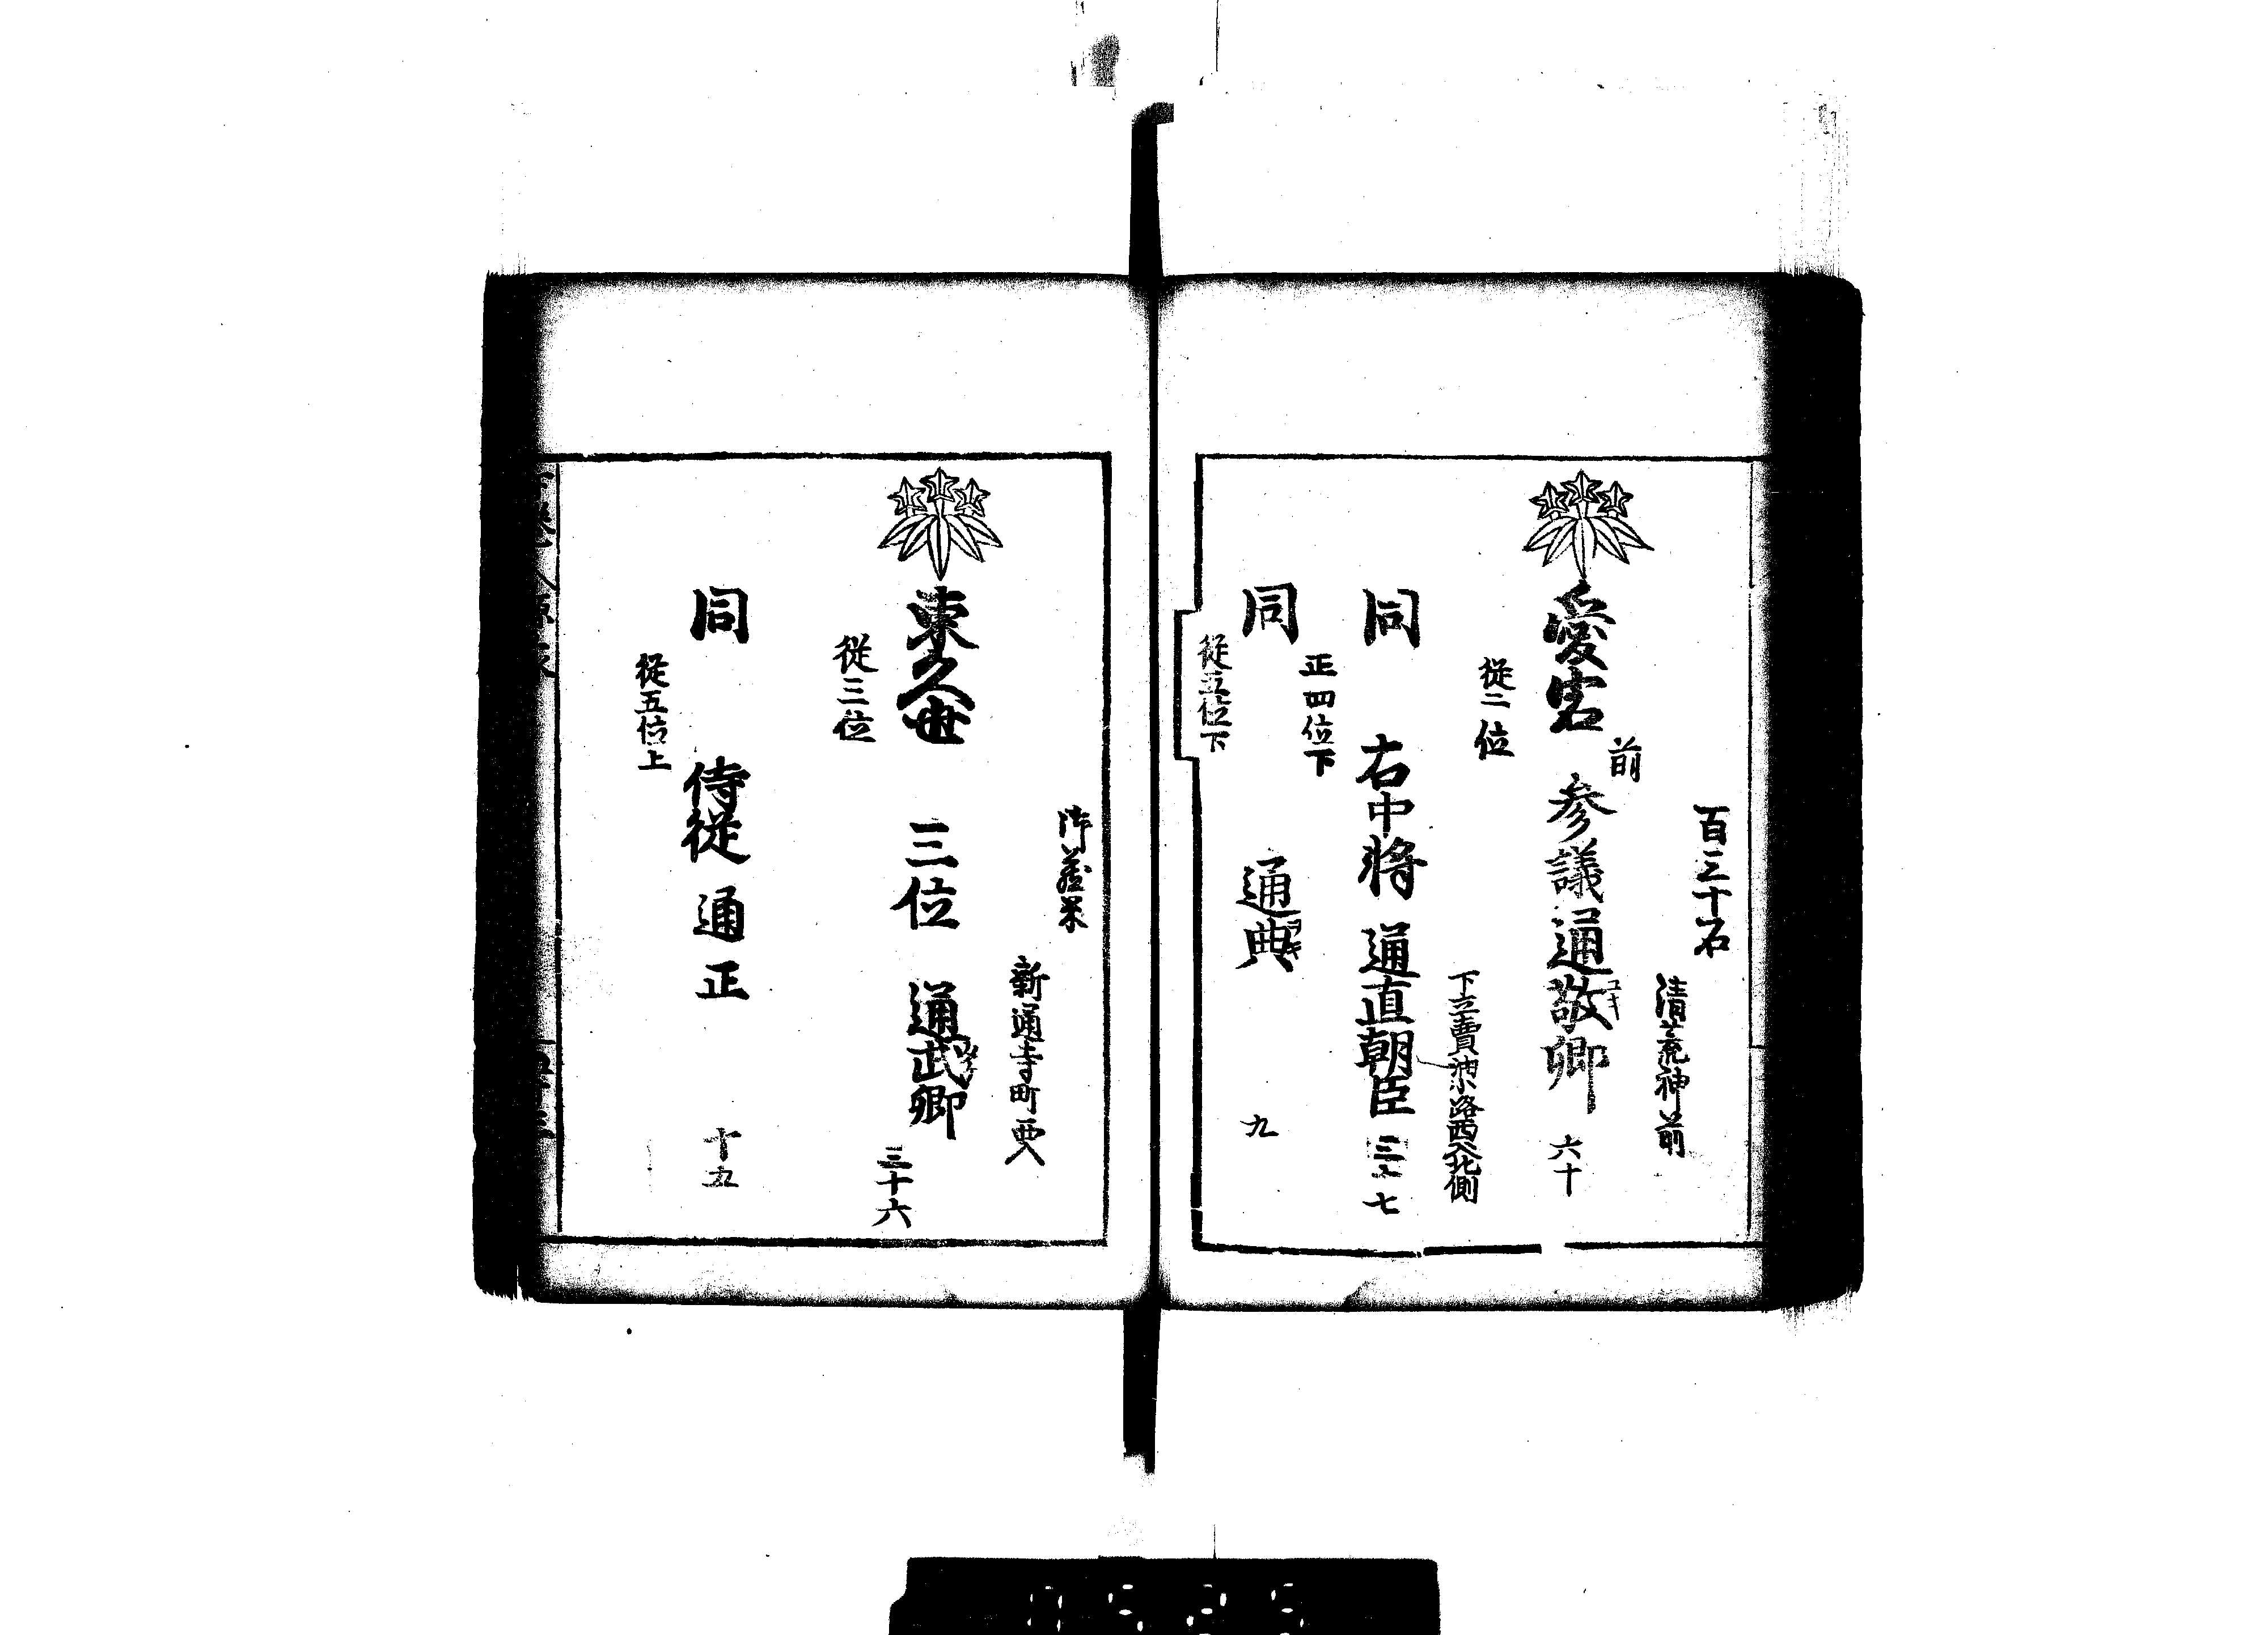 百三十石
清荒神前
前
愛宕 参議通敬卿 六十
従二位
下立賣油小路西入北側
同 右中将 通直朝臣 七
正四位下
同 通典 九
従五位下
御蔵米
新通寺町
東久世 三位 通武卿 三十六
従三位
同 侍従 通正 十五
従五位上